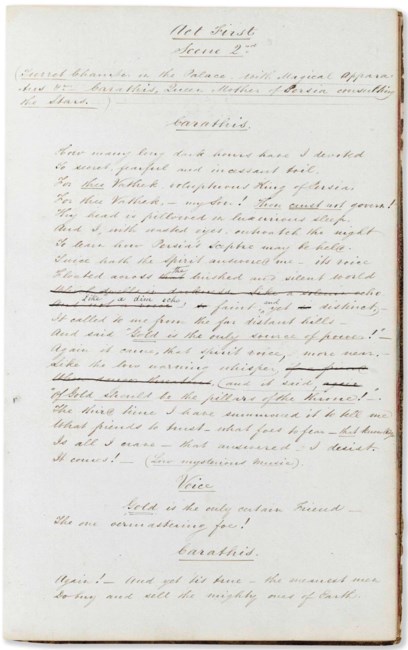 Act First
Scene 2nd
(Turret Chamber in the Palace with Magical Appara
tus &c Carathis, Queen Mother of Persia consulting
the Stars.)
Carathis.
How many long dark hours have I devoted
To secret, fearful and incessant toil.
For thee Vathek, voluptuous King of Persia
For thee Vathek, – my Son! Thou canst not govern!
Thy head is pillowed in luxurious sleep
And I, with wasted eyes, outwatch the night
To learn how Persia's Sceptre may be held.
Twice hath the Spirit answered me – its voice
Floated across the hushed and silent world
Like a dim echo faint, and yet distinct,–
It called to me from the far distant hills –
And said "Gold is the only source of power!"–
Again it came, that spirit voice, more near.
Like the low warning whisper
(and it said,
"Of Gold should be the pillars of the Throne!"–
The third time I have summoned it to tell me
What friends to trust – what foes to fear –
Is all I crave – that answered – I desist.
It comes! – (Low mysterious music).
Voice
Gold is the only certain Friend –
The one o'ermastering foe!
Carathis.
Again! – And yet 'tis true – the meanest men
Do buy and sell the mighty ones of Earth.